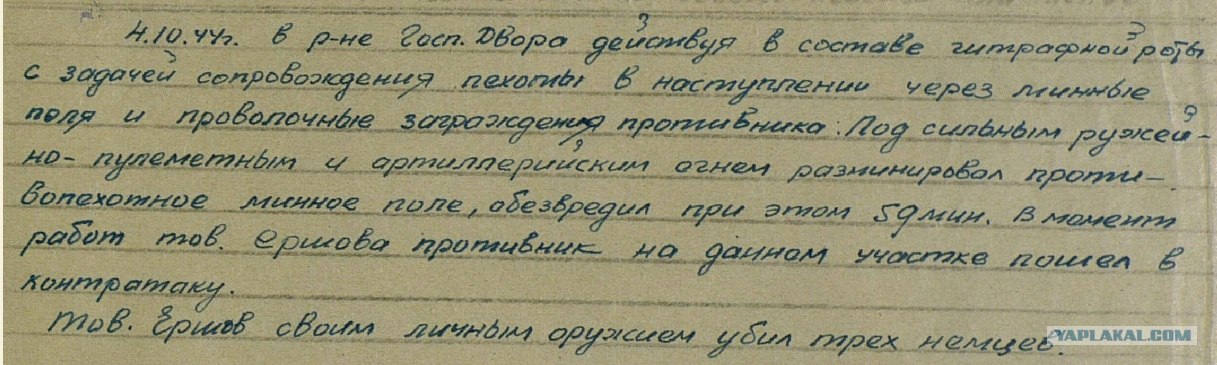 4.10.44г. в р-не Госп. Двора действуя в составе штрафной роты
с задачей сопровождения пехоты в наступлении через минные
поля и проволочные заграждения противника. Под сильным ружей-
но-пулеметным и артиллерийским огнем разминировал проти-
вопехотное минное поле, обезвредил при этом 59 мин. В момент
работ тов. Ершова противник на данном участке пошел в
контратаку.
Тов. Ершов своим личным оружием убил трех немцев.
YAPLAKAL.COM